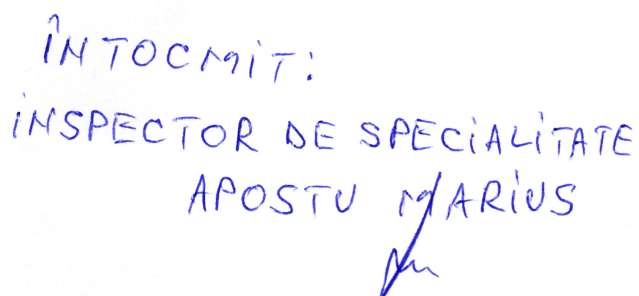 ÎNTOCMIT:
INSPECTOR DE SPECIALITATE
APOSTU MARIUS